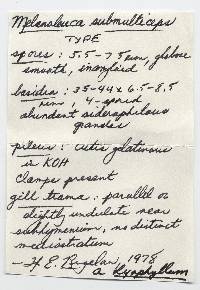 Melanoleuca submulticeps
TYPE
spores: 5.5-7.5 µm, globose
smooth, inamyloid
basidia: 35-44 x 6.5-8.5
µm, 4-spored
abundant siderophilous
granules
pileus: cutis gelatinous
in KOH
Clamps present
gill trama: parallel or
slightly undulate near
subhymenium, no distinct
mediostratum
— H. E. Bigelow, 1978
a Lyophyllum